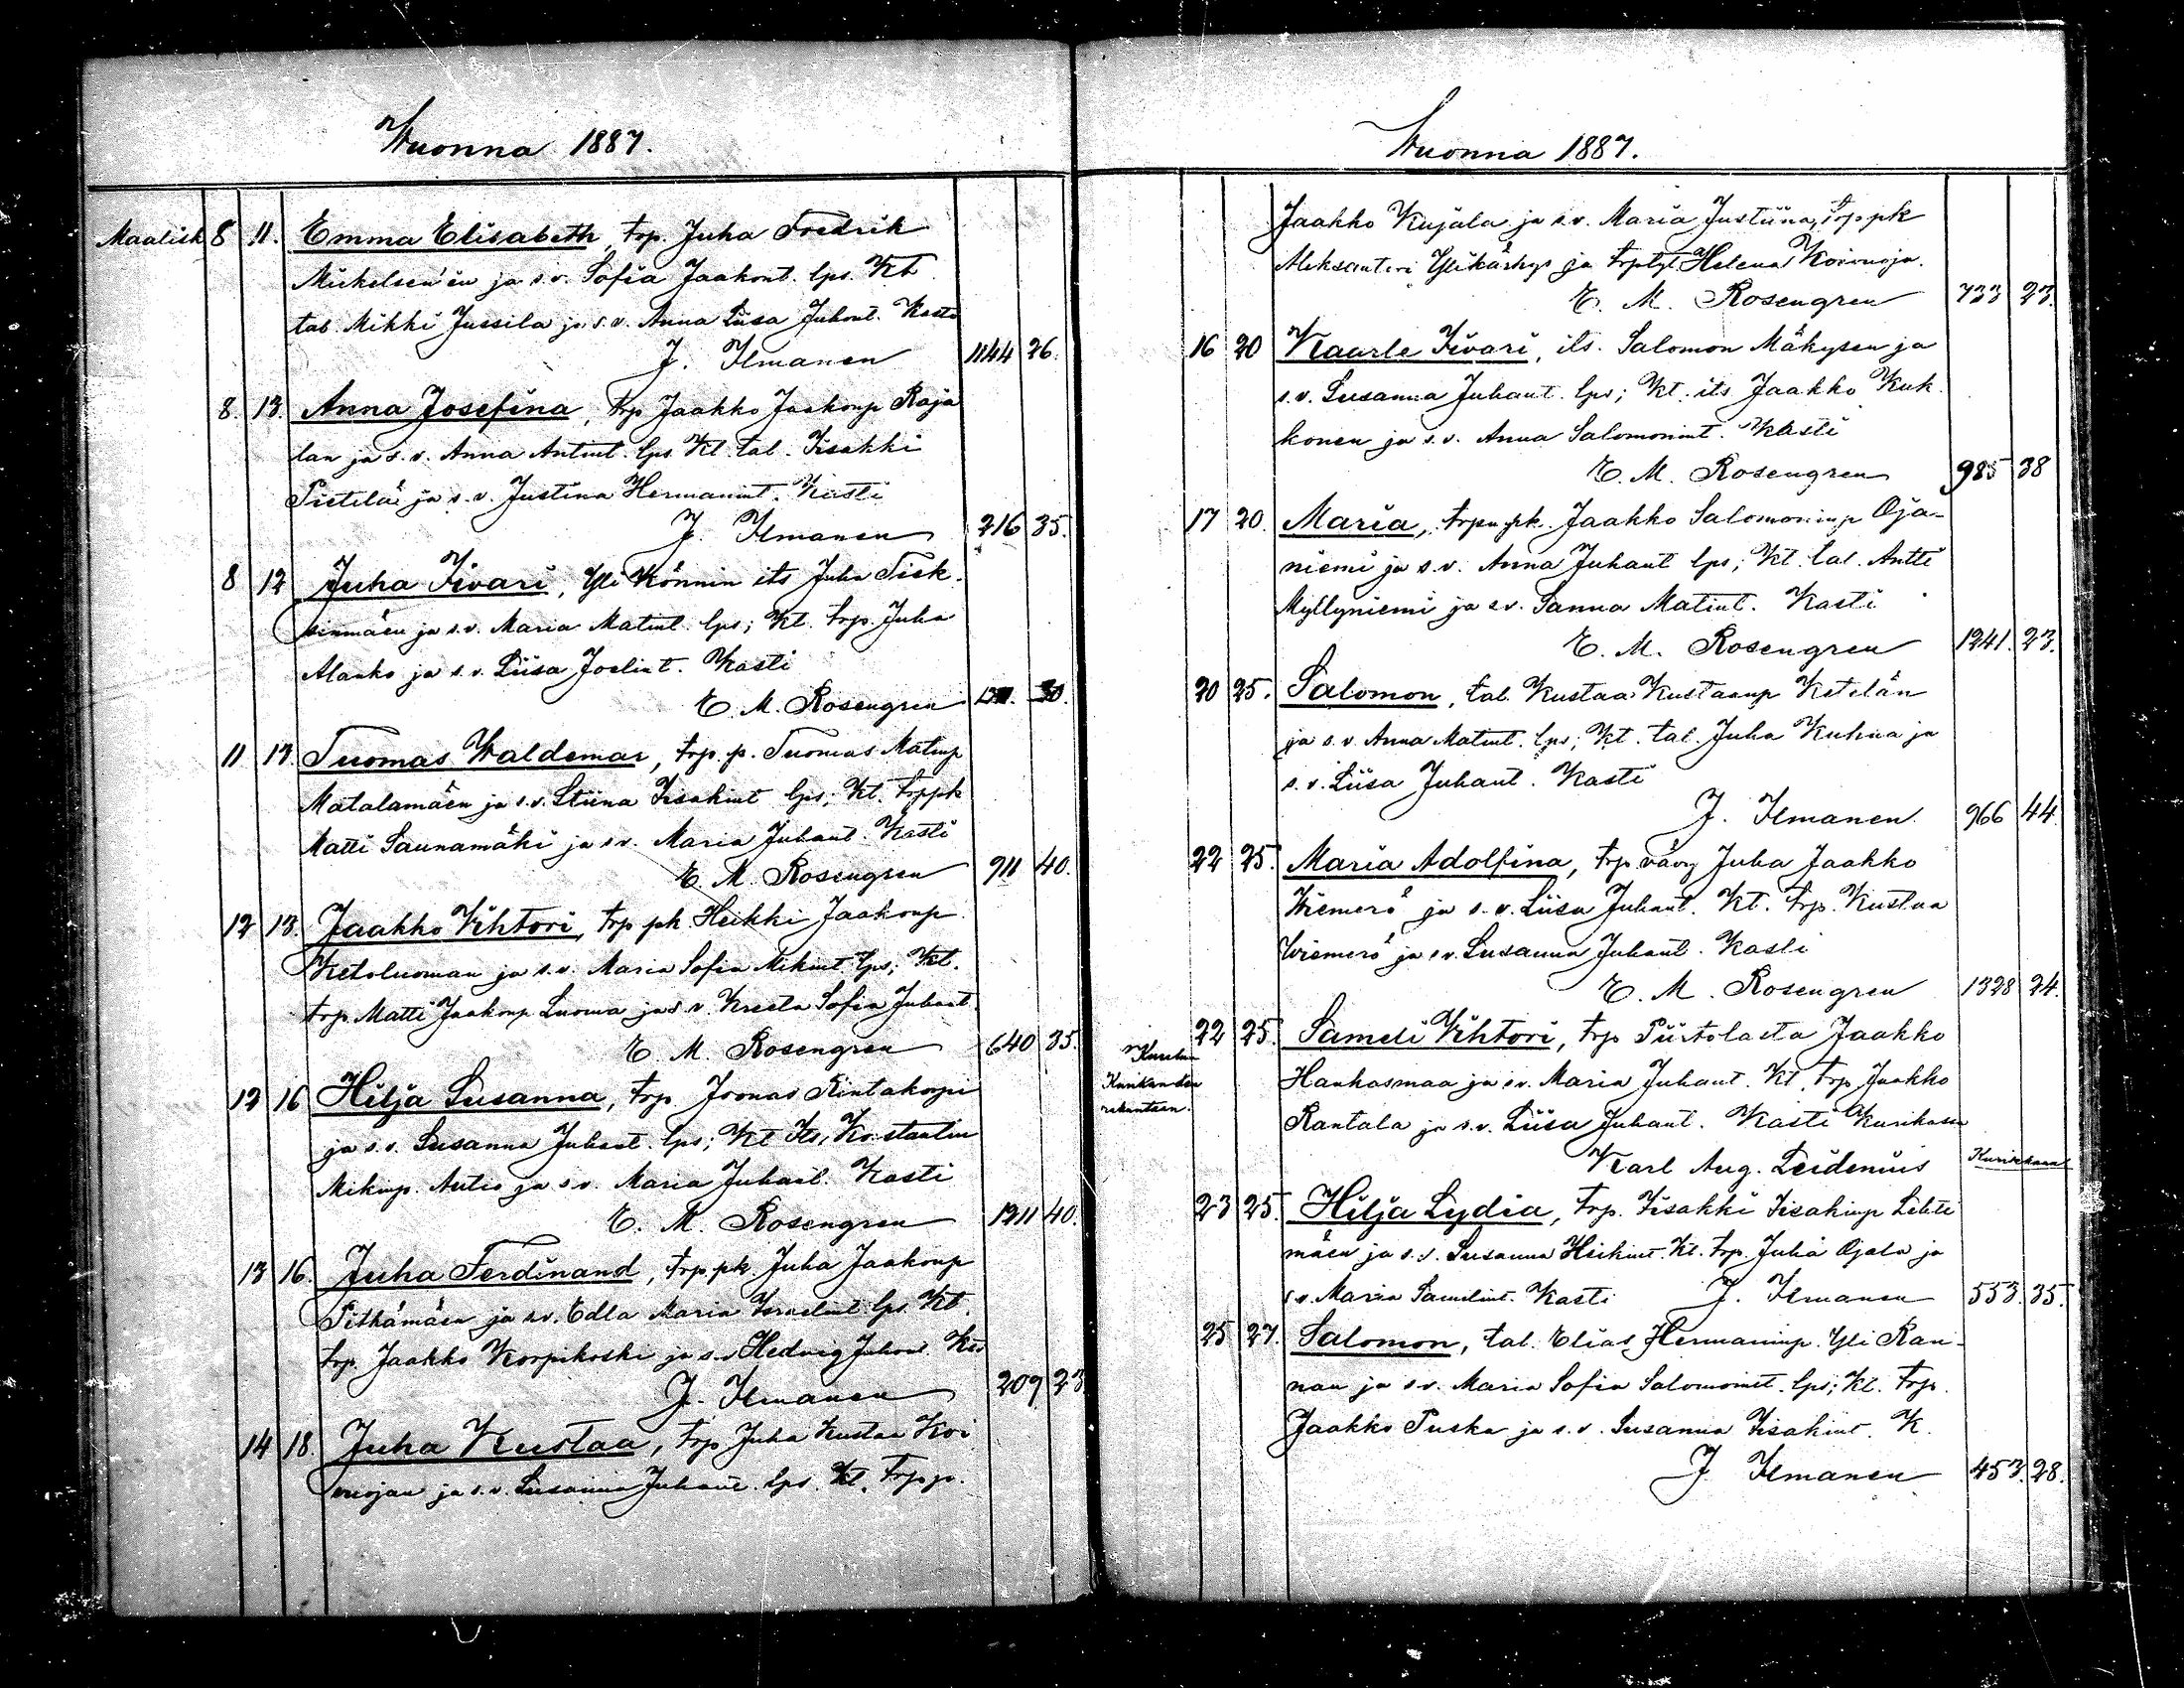 Wuonna 1887.
Maalisk 8 11. Emma Elisabeth, trp. Juha Fredrik
Mickelsen'in ja s.v. Sofia Jaakont. lps. Kt
tal. Mikki Jussila ja s.v. Anna Liisa Juhont. Kasti
J. Ilmanen 1144 26.
8. 13. Anna Josefina, trp Jaakko Jaakonp Raja
lan ja s.v. Anna Antint. lps Kt. tal. Iisakki
Pietilä ja s.v. Justina Hermanint. Kasti
J. Ilmanen 216 35.
8 12 Juha Iivari, Yli Könnin its Juha Tiek
sinmäen ja s.v. Maria Matint. lps; Kt. trp. Juha
Alanko ja s.v. Liisa Joelint. Kasti
E. M. Rosengren 30.
11 13 Tuomas Waldemar, trp. p. Tuomas Matinp
Matalamäen ja s.v. Stiina Iisakint lps; Kt. trppk
Matti Saunamäki ja s.v. Maria Juhant. Kasti
E. M. Rosengren 911 40.
12 13. Jaakko Wihtori, trp pk Heikki Jaakonp
Ketoluoman ja s.v. Maria Sofia Mikint. lps; Kt.
trp. Matti Jaakonp Luoma ja s.v. Kreeta Sofia Juhant.
E. M. Rosengren 640 35.
12 16 Hilja Susanna, trp. Joonas Rintakorpi
ja s.v. Susanna Juhant. lps; Kt Its. Konstantin
Mikinp. Autio ja s.v. Maria Juhant. Kasti
E. M. Rosengren 1211 40.
13 16. Juha Ferdinand, trp.pk Juha Jaakonp
Pitkämäen ja s.v. Edla Maria Israelint lps. Kt.
trp. Jaakko Korpikoski ja s.v. Hedvig Juhont.
J. Ilmanen 209 23
14 18. Juha Kustaa, trp Juha Kustaa Koi
vuojan ja s.v. Susanna Juhant. lps. Kt. Trp p.
Wuonna 1887.
Jaakko Kujala ja s.v. Maria Justiina, trppk
Aleksanteri Ylikärhys ja trptyt Helena Koivuoja.
E. M. Rosengren 733 23.
16 20 Kaarle Iivari, its. Salomon Mäkysen ja
s.v. Susanna Juhant. lps; Kt. its Jaakko Kuk
konen ja s.v. Anna Salomonint. Kasti
E. M. Rosengren 985 38
17 20. Maria, trpn pk. Jaakko Salomoninp Oja-
niemi ja s.v. Anna Juhant lps; Kt. tal. Antti
Myllyniemi ja s.v. Sanna Matint. Kasti
E. M. Rosengren 1241. 23.
20 25. Salomon, tal. Kustaa Kustaanp Ketelän
ja s.v. Anna Matint. lps; Kt. tal. Juha Kuhna ja
s.v. Liisa Juhant. Kasti
J. Ilmanen. 966 44.
22 25. Maria Adolfina, trp. vävy Juha Jaakko
Wiemerö ja s.v. Liisa Juhant. Kt. trp. Kustaa
Wiemerö ja s.v. Susanna Juhant. Kasti
E. M. Rosengren 1328 24.
22 25. Sameli Wihtori, trp Piirtolasta Jaakko
Hankasmaa ja s.v. Maria Juhant. Kt. trp. Jaakko
Rantala ja s.v. Liisa Juhant. Kasti Kurikassa
Karl Aug. Leidenius Kurikkaan
23 25. Hilja Lydia, trp. Iisakki Iisakinp Lehti
mäen ja s.v. Susanna Heikint. Kt. trp. Juha Ojala ja
s.v. Maria Samelint. Kasti J. Ilmanen 553. 35.
25 27. Salomon, tal. Elias Hermaninp. Yli Ran-
nan ja s.v. Maria Sofia Salomonint. lps; Kt. trp.
Jaakko Puska ja s.v. Susanna Iisakint. K.
J. Ilmanen 453. 28.